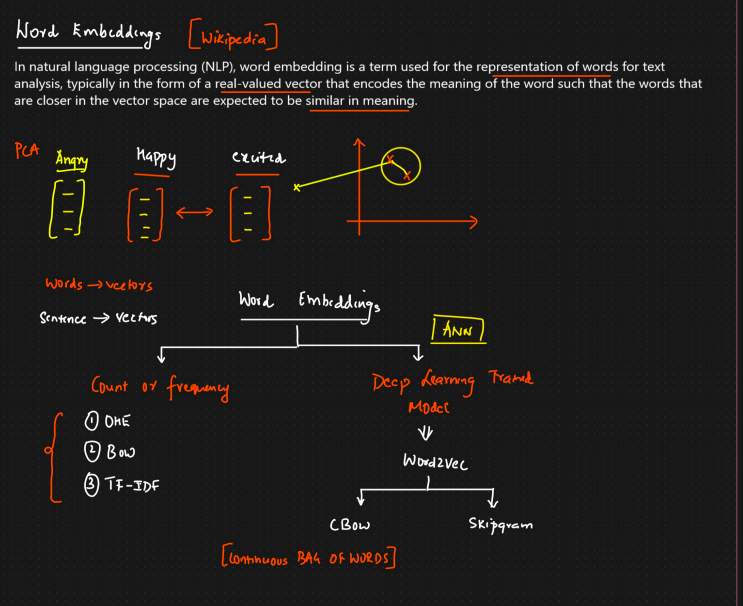 Word Embeddings [Wikipedia]
In natural language processing (NLP), word embedding is a term used for the representation of words for text
analysis, typically in the form of a real-valued vector that encodes the meaning of the word such that the words that
are closer in the vector space are expected to be similar in meaning.
PCA Angry Happy excited
Words → vectors
Sentence → vectors
Word Embeddings
ANN
Count or frequency
Deep Learning Trained
Model
① OHE
② BOW
③ TF-IDF
Word2vec
CBOW Skipgram
[Continuous BAG OF WORDS]